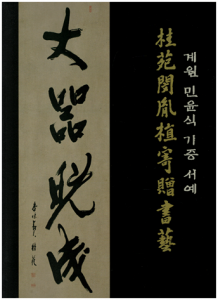 계원 민윤식 기증 서예
桂苑閔胤植寄贈書藝
大器晩成